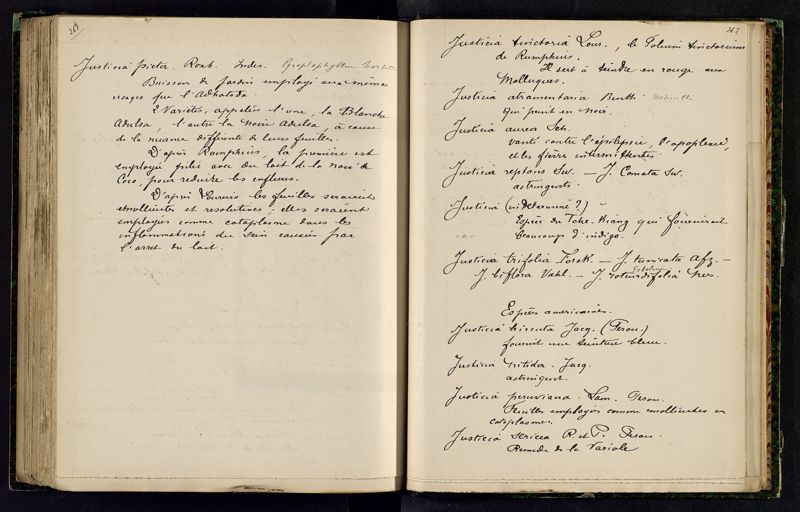 261
Justicia picta. Roxb. Indes. Graptophyllum hortense
Buisson de jardin employé aux mêmes
usages que l'Adhatoda.
2 Variétés, appelés l'une, la Blanche
Adulsa, l'autre la Noire Adulsa, à cause
de la nuance différente de leurs feuilles.
D'après Rumphius, la première est
employée pilée avec du lait de la noix de
Coco, pour réduire les enflures.
D'après Loureiro les feuilles seraient
émollientes et résolutives; elles seraient
employées comme cataplasme dans les
inflammations du sein causées par
l'arret du lait.
262
Justicia tinctoria Lour., le Folium tinctorum
de Rumphius.
Il sert à teindre en rouge aux
Molluques.
Justicia atramentaria Benth.
qui peint en noir.
Justicia aurea Sch.
vanté contre l'épilepsie, l'apoplexie,
et les fièvres intermittentes.
Justicia reptans Sw. — J. Comata Sw.
astringents.
Justicia (indéterminé?)
Espèce du Tche-Kiang qui fournirait
beaucoup d'indigo.
Justicia trifolia Forsk. — J. tunicata Afz. —
J. biflora Vahl. — J. rotundifolia Nees.
Espèces américaines.
Justicia hirsuta Jacq. (Perou.)
fournit une teinture bleue.
Justicia nitida. Jacq.
astringent.
Justicia peruviana. Lam. Perou.
Feuilles employées comme émollientes en
cataplasmes.
Justicia sericea R. et P. Perou.
Remède de la Variole